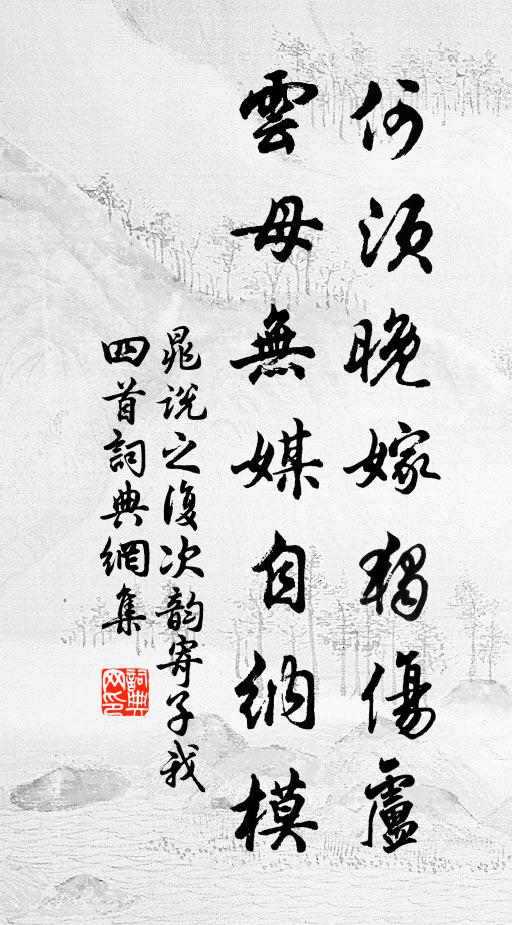 何須晚嫁獨傷廬
雲母無媒自納模
晁说之復次韵寄子我
四首詞典網集
詞典网印